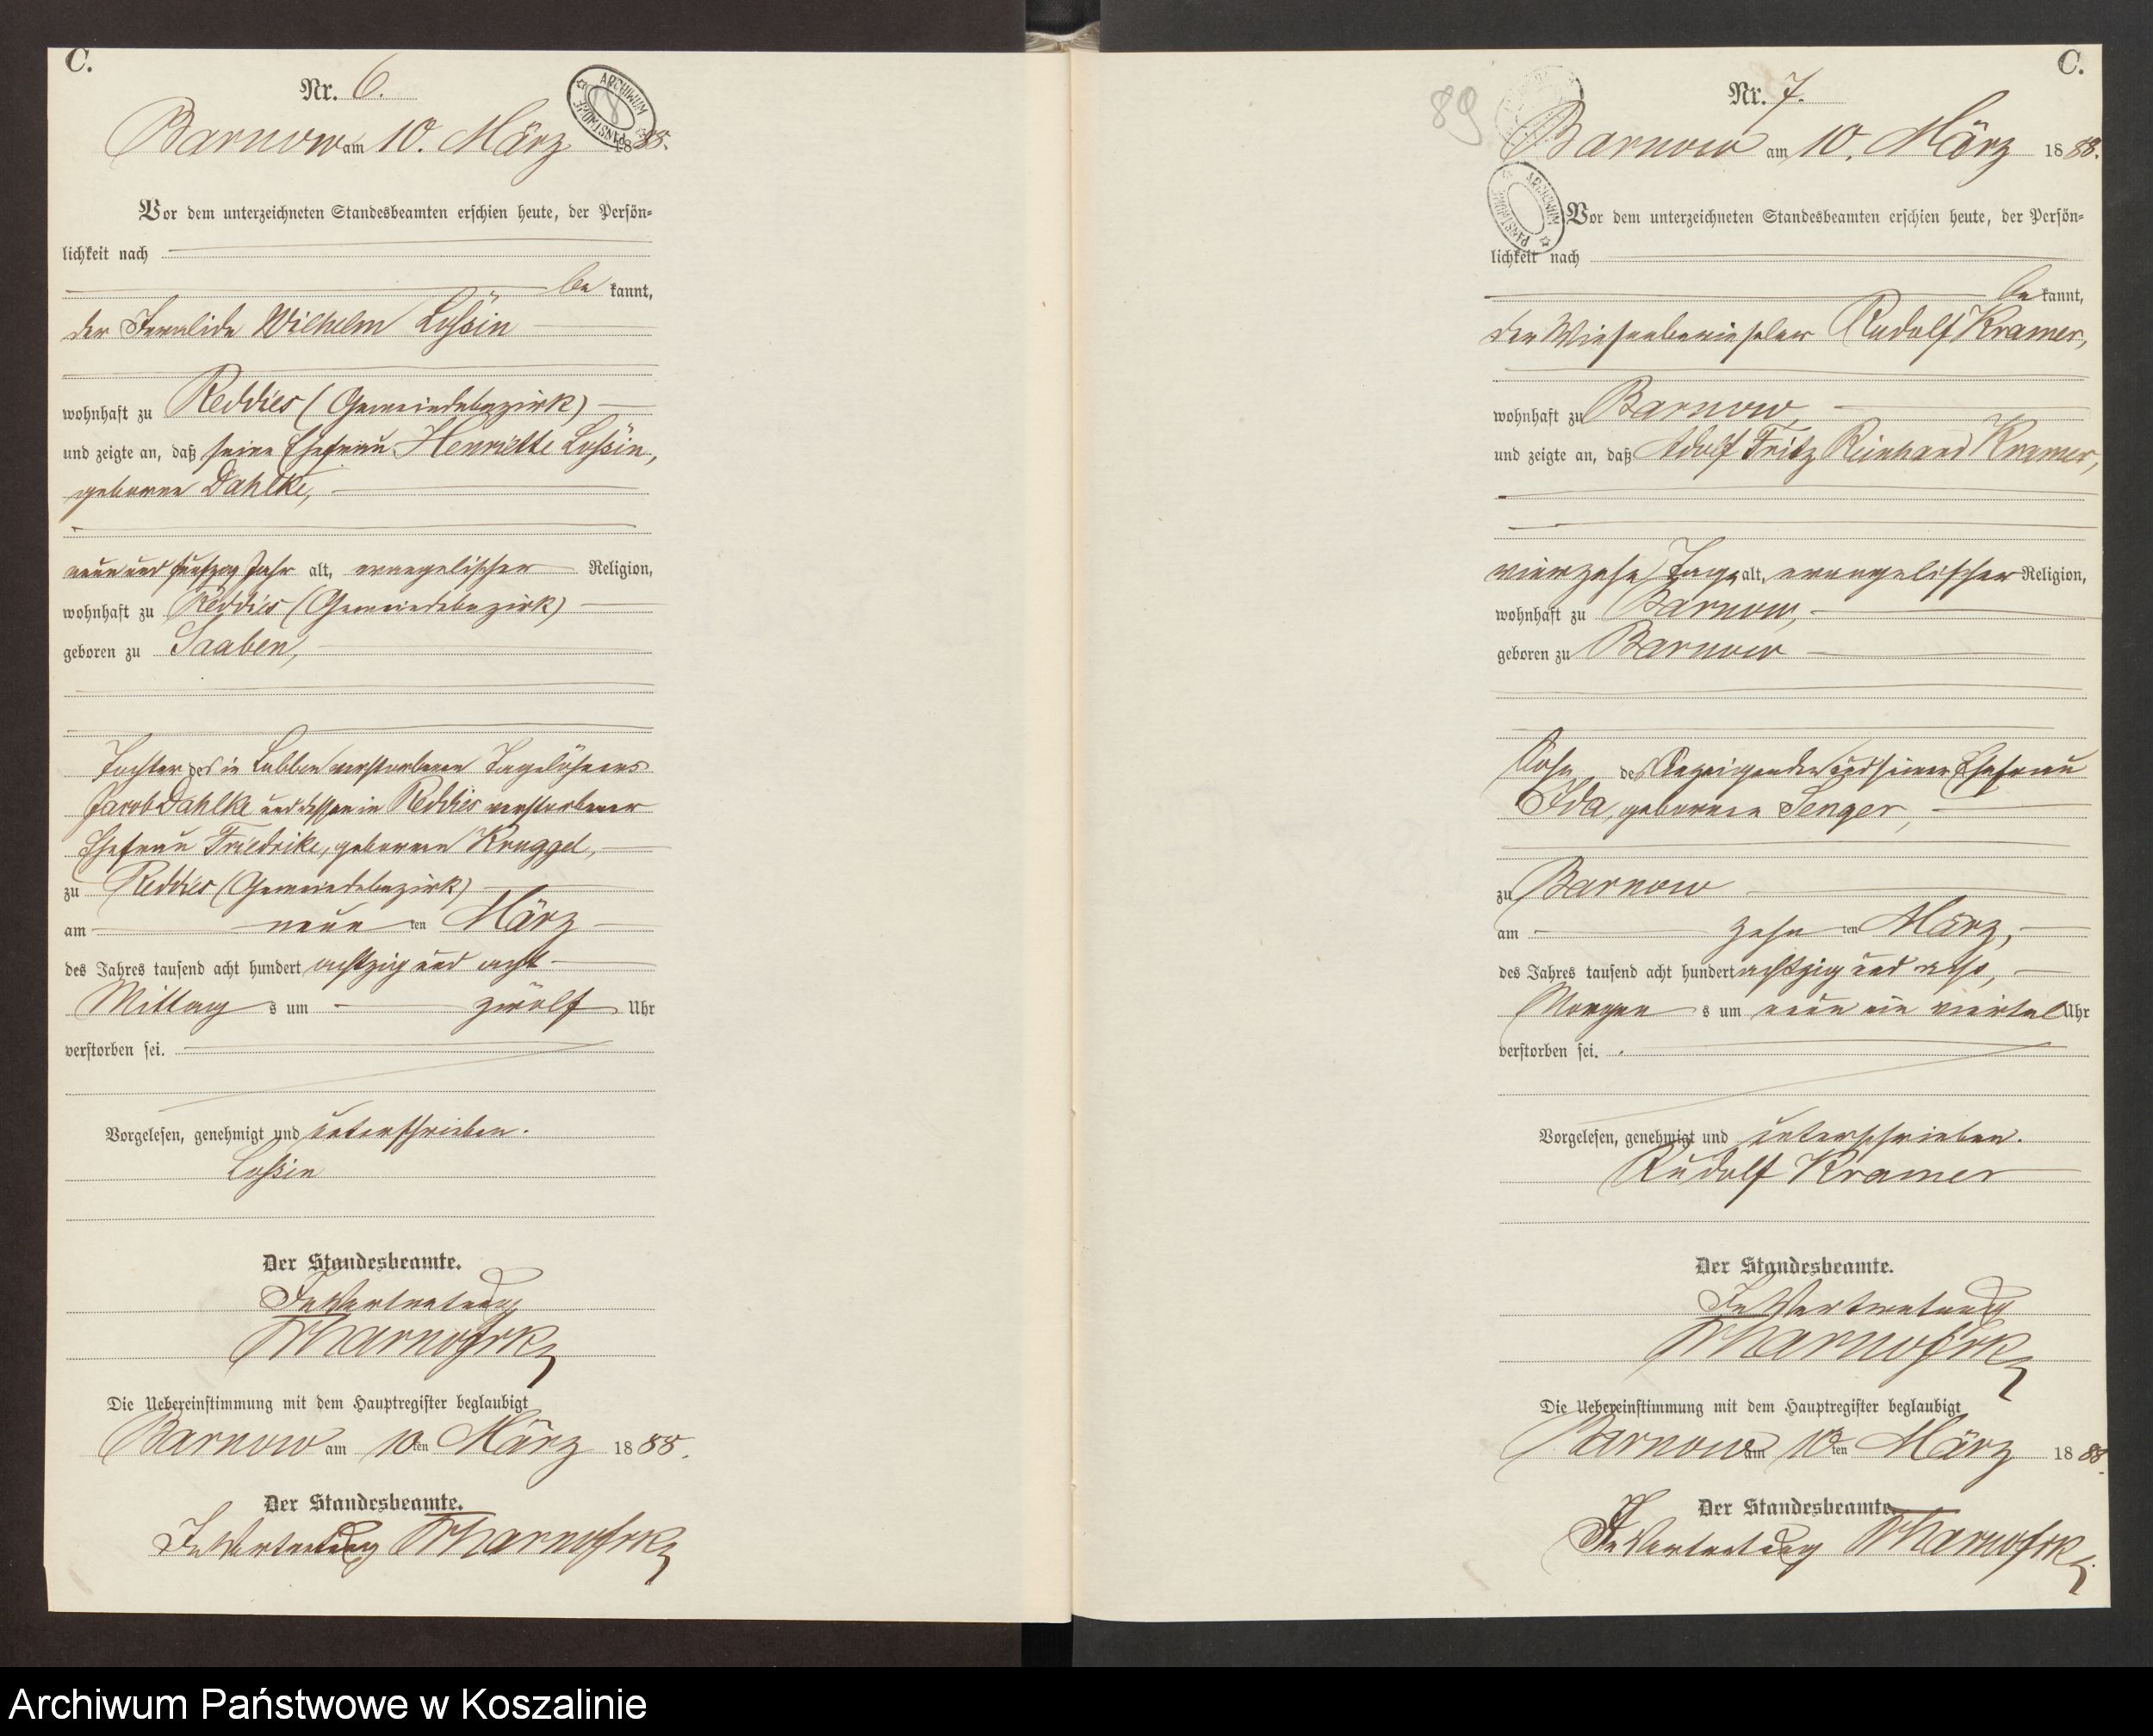 C.
Nr. 6.
ARCHIWUM PAŃSTWOWE
Barnow am 10. März 1888.
Vor dem unterzeichneten Standesbeamten erschien heute, der Persön-
lichkeit nach
be kannt,
der Invalide Wilhelm Lossin
wohnhaft zu Reddies (Gemeindebezirk)
und zeigte an, daß seine Ehefrau Henriette Lossin,
geborne Dahlke,
neun und fünfzig Jahr alt, evangelischer Religion,
wohnhaft zu Reddies (Gemeindebezirk)
geboren zu Saaben,
Tochter des in Lubben verstorbenen Tagelöhners
Jacob Dahlke und dessen in Reddies verstorbener
Ehefrau Friedrike, geborenen Kruggel,
zu Reddies (Gemeindebezirk)
am neun ten März
des Jahres tausend acht hundert achtzig und acht
Mittag s um zwölf Uhr
verstorben sei.
Vorgelesen, genehmigt und unterschrieben.
Lossin
Der Standesbeamte.
In Vertretung
Die Uebereinstimmung mit dem Hauptregister beglaubigt
Barnow am 10ten März 1888.
Der Standesbeamte.
In Vertretung
C.
89
Nr. 7.
Barnow am 10. März 1888.
ARCHIWUM PAŃSTWOWE
Vor dem unterzeichneten Standesbeamten erschien heute, der Persön-
lichkeit nach
be kannt,
der Wiesenberieseler Rudolf Kramer,
wohnhaft zu Barnow,
und zeigte an, daß Adolf Fritz Reinhard Kramer,
vierzehn Tage alt, evangelischer Religion,
wohnhaft zu Barnow,
geboren zu Barnow
Sohn des Anzeigenden und seiner Ehefrau
Ida, geborenen Senger,
zu Barnow
am zehn ten März,
des Jahres tausend acht hundert achtzig und acht,
Morgen s um neun ein viertel Uhr
verstorben sei.
Vorgelesen, genehmigt und unterschrieben.
Rudolf Kramer
Der Standesbeamte.
In Vertretung
Die Uebereinstimmung mit dem Hauptregister beglaubigt
Barnow am 10ten März 1888.
Der Standesbeamte.
In Vertretung
Archiwum Państwowe w Koszalinie